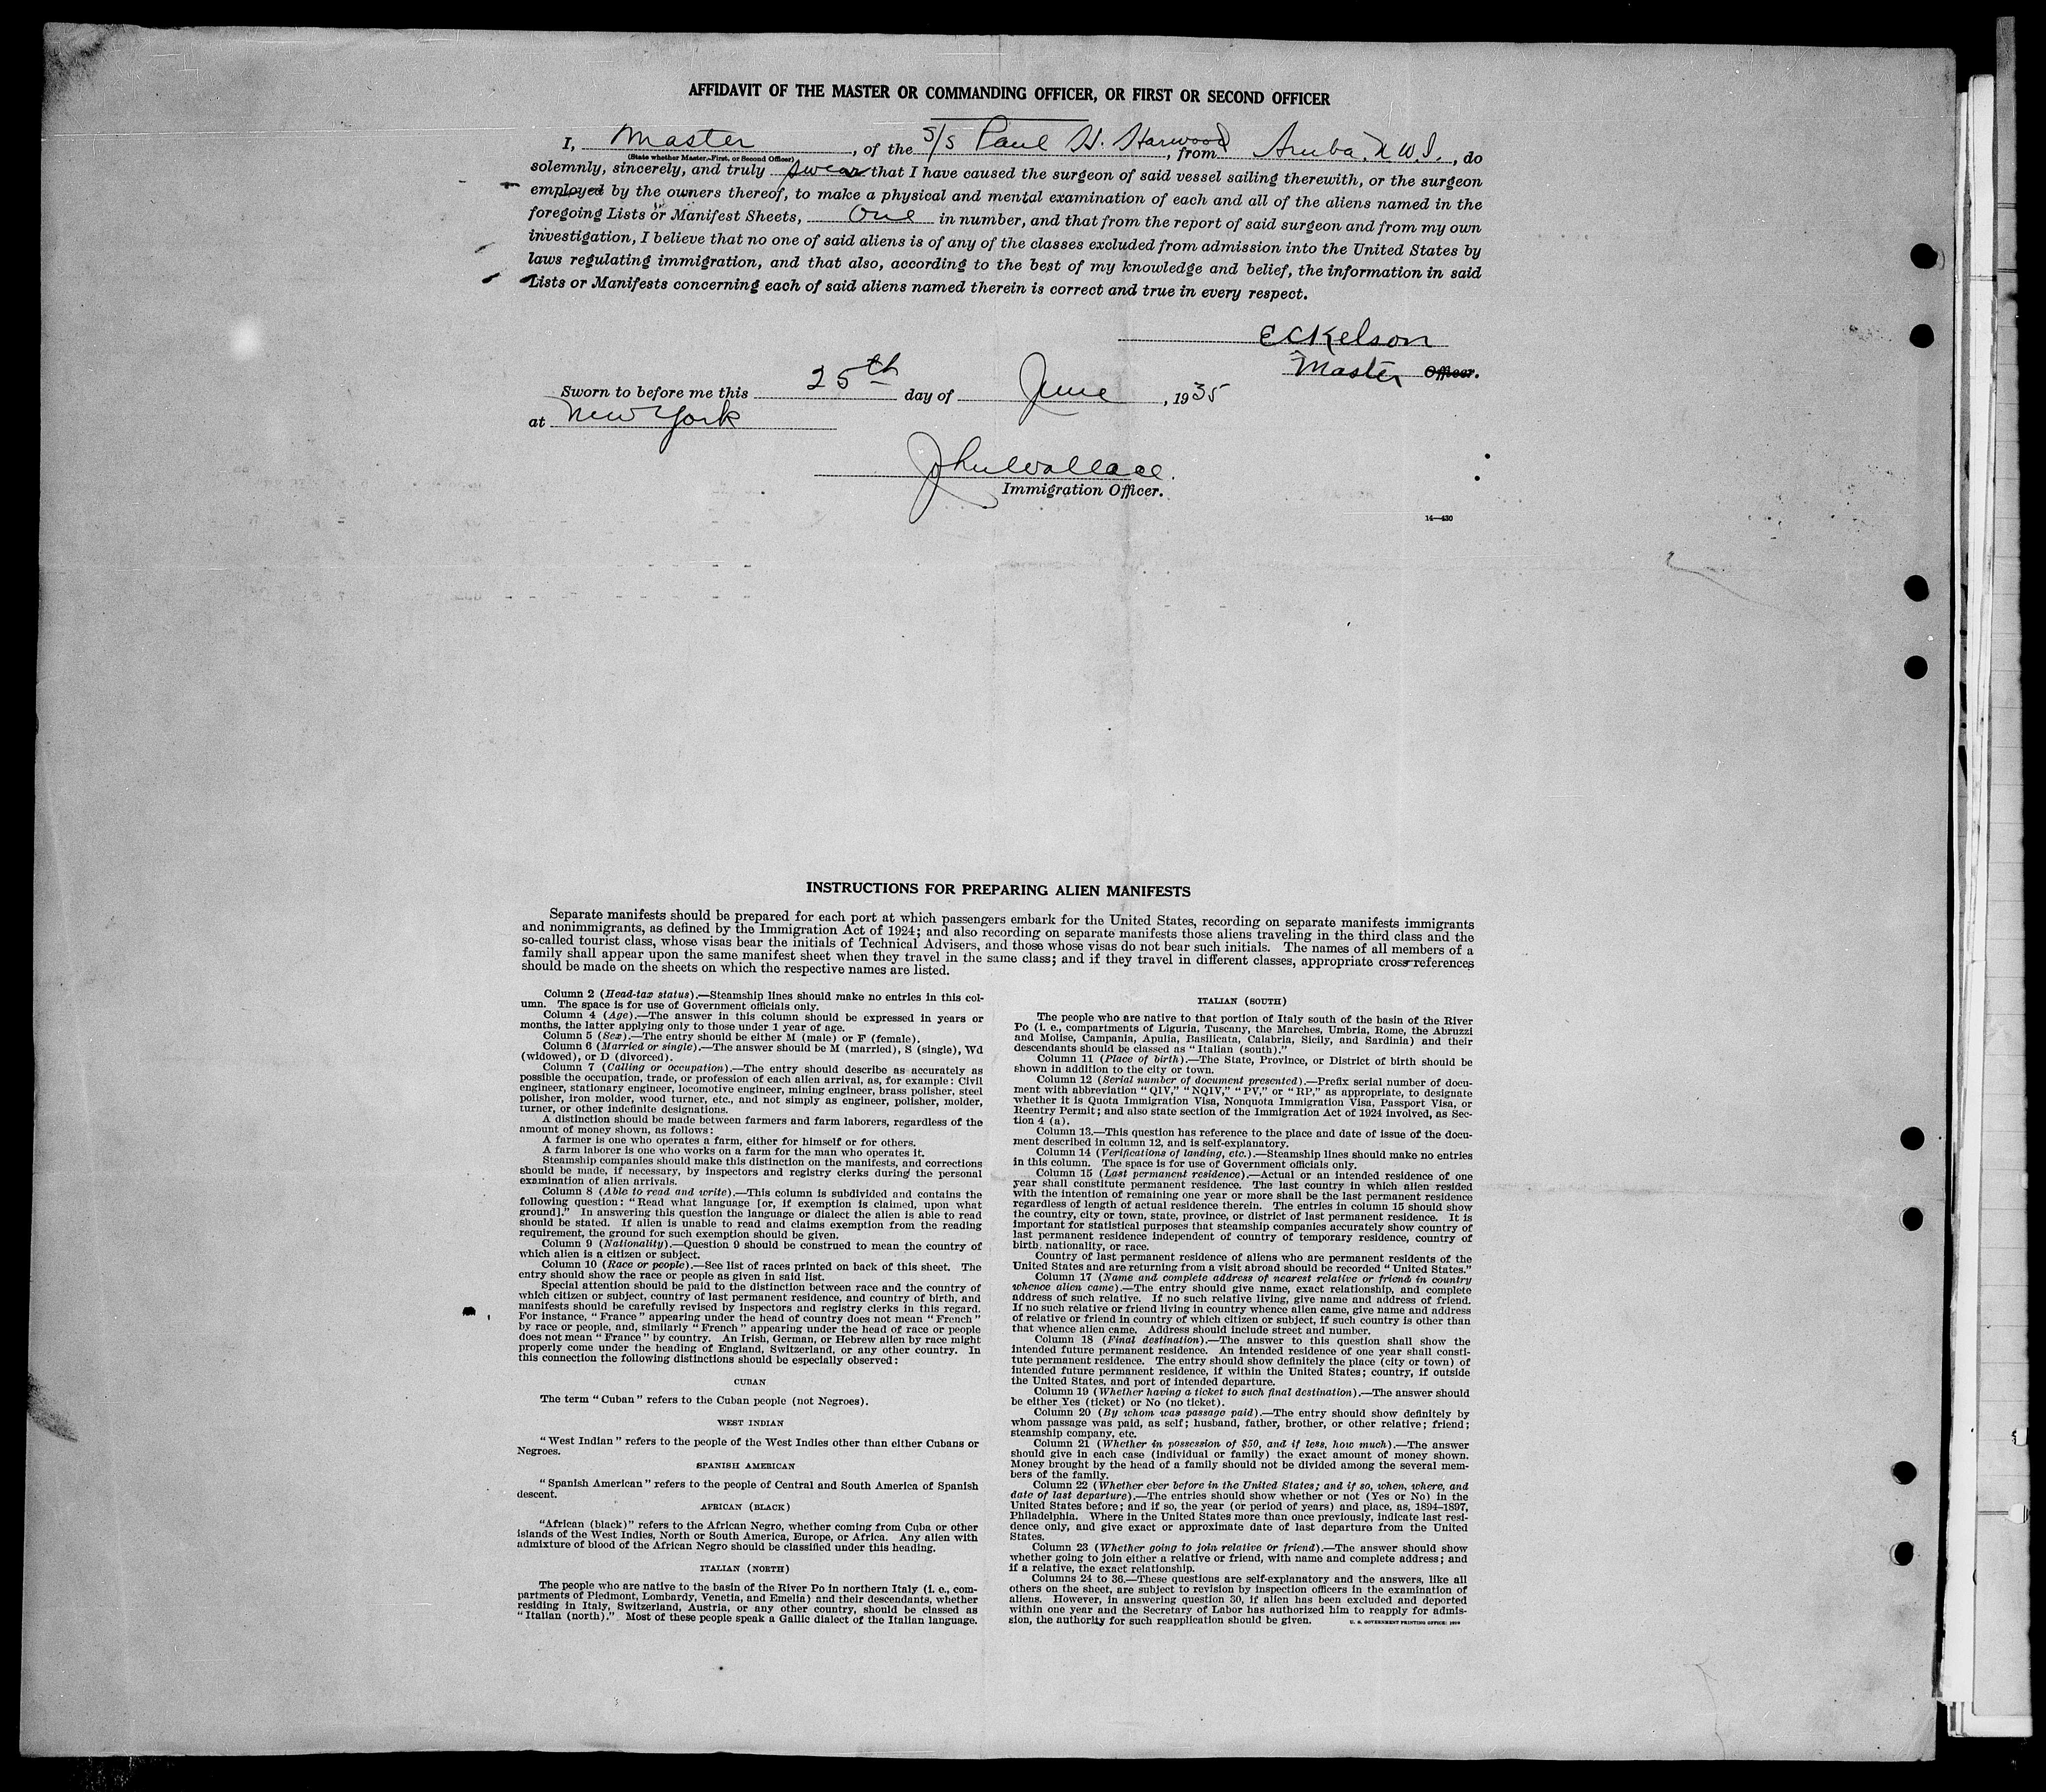 AFFIDAVIT OF THE MASTER OR COMMANDING OFFICER, OR FIRST OR SECOND OFFICER
I, Master, of the S/S Paul H. Harwood, from Aruba, N.W.I., do
(State whether Master, First, or Second Officer)
solemnly, sincerely, and truly swear that I have caused the surgeon of said vessel sailing therewith, or the surgeon
employed by the owners thereof, to make a physical and mental examination of each and all of the aliens named in the
foregoing Lists or Manifest Sheets, One in number, and that from the report of said surgeon and from my own
investigation, I believe that no one of said aliens is of any of the classes excluded from admission into the United States by
laws regulating immigration, and that also, according to the best of my knowledge and belief, the information in said
Lists or Manifests concerning each of said aliens named therein is correct and true in every respect.
E C Kelson
Master Officer.
Sworn to before me this 25th day of June, 1935
at New York
John Wallace.
Immigration Officer.
14—430
INSTRUCTIONS FOR PREPARING ALIEN MANIFESTS
Separate manifests should be prepared for each port at which passengers embark for the United States, recording on separate manifests immigrants
and nonimmigrants, as defined by the Immigration Act of 1924; and also recording on separate manifests those aliens traveling in the third class and the
so-called tourist class, whose visas bear the initials of Technical Advisers, and those whose visas do not bear such initials. The names of all members of a
family shall appear upon the same manifest sheet when they travel in the same class; and if they travel in different classes, appropriate cross-references
should be made on the sheets on which the respective names are listed.
Column 2 (Head-tax status).—Steamship lines should make no entries in this col-
umn. The space is for use of Government officials only.
Column 4 (Age).—The answer in this column should be expressed in years or
months, the latter applying only to those under 1 year of age.
Column 5 (Sex).—The entry should be either M (male) or F (female).
Column 6 (Married or single).—The answer should be M (married), S (single), Wd
(widowed), or D (divorced).
Column 7 (Calling or occupation).—The entry should describe as accurately as
possible the occupation, trade, or profession of each alien arrival, as, for example: Civil
engineer, stationary engineer, locomotive engineer, mining engineer, brass polisher, steel
polisher, iron molder, wood turner, etc., and not simply as engineer, polisher, molder,
turner, or other indefinite designations.
A distinction should be made between farmers and farm laborers, regardless of the
amount of money shown, as follows:
A farmer is one who operates a farm, either for himself or for others.
A farm laborer is one who works on a farm for the man who operates it.
Steamship companies should make this distinction on the manifests, and corrections
should be made, if necessary, by inspectors and registry clerks during the personal
examination of alien arrivals.
Column 8 (Able to read and write).—This column is subdivided and contains the
following question: "Read what language [or, if exemption is claimed, upon what
ground]." In answering this question the language or dialect the alien is able to read
should be stated. If alien is unable to read and claims exemption from the reading
requirement, the ground for such exemption should be given.
Column 9 (Nationality).—Question 9 should be construed to mean the country of
which alien is a citizen or subject.
Column 10 (Race or people).—See list of races printed on back of this sheet. The
entry should show the race or people as given in said list.
Special attention should be paid to the distinction between race and the country of
which citizen or subject, country of last permanent residence, and country of birth, and
manifests should be carefully revised by inspectors and registry clerks in this regard.
For instance, "France" appearing under the head of country does not mean "French"
by race or people, and, similarly "French" appearing under the head of race or people
does not mean "France" by country. An Irish, German, or Hebrew alien by race might
properly come under the heading of England, Switzerland, or any other country. In
this connection the following distinctions should be especially observed:
CUBAN
The term "Cuban" refers to the Cuban people (not Negroes).
WEST INDIAN
"West Indian" refers to the people of the West Indies other than either Cubans or
Negroes.
SPANISH AMERICAN
"Spanish American" refers to the people of Central and South America of Spanish
descent.
AFRICAN (BLACK)
"African (black)" refers to the African Negro, whether coming from Cuba or other
islands of the West Indies, North or South America, Europe, or Africa. Any alien with
admixture of blood of the African Negro should be classified under this heading.
ITALIAN (NORTH)
The people who are native to the basin of the River Po in northern Italy (i. e., com-
partments of Piedmont, Lombardy, Venetia, and Emelia) and their descendants, whether
residing in Italy, Switzerland, Austria, or any other country, should be classed as
"Italian (north)." Most of these people speak a Gallic dialect of the Italian language.
ITALIAN (SOUTH)
The people who are native to that portion of Italy south of the basin of the River
Po (i. e., compartments of Liguria, Tuscany, the Marches, Umbria, Rome, the Abruzzi
and Molise, Campania, Apulia, Basilicata, Calabria, Sicily, and Sardinia) and their
descendants should be classed as "Italian (south)."
Column 11 (Place of birth).—The State, Province, or District of birth should be
shown in addition to the city or town.
Column 12 (Serial number of document presented).—Prefix serial number of docu-
ment with abbreviation "QIV," "NQIV," "PV," or "RP," as appropriate, to designate
whether it is Quota Immigration Visa, Nonquota Immigration Visa, Passport Visa, or
Reentry Permit; and also state section of the Immigration Act of 1924 involved, as Sec-
tion 4 (a).
Column 13.—This question has reference to the place and date of issue of the docu-
ment described in column 12, and is self-explanatory.
Column 14 (Verifications of landing, etc.).—Steamship lines should make no entries
in this column. The space is for use of Government officials only.
Column 15 (Last permanent residence).—Actual or an intended residence of one
year shall constitute permanent residence. The last country in which alien resided
with the intention of remaining one year or more shall be the last permanent residence
regardless of length of actual residence therein. The entries in column 15 should show
the country, city or town, state, province, or district of last permanent residence. It is
important for statistical purposes that steamship companies accurately show country of
last permanent residence independent of country of temporary residence, country of
birth, nationality, or race.
Country of last permanent residence of aliens who are permanent residents of the
United States and are returning from a visit abroad should be recorded "United States."
Column 17 (Name and complete address of nearest relative or friend in country
whence alien came).—The entry should give name, exact relationship, and complete
address of such relative. If no such relative living, give name and address of friend.
If no such relative or friend living in country whence alien came, give name and address
of relative or friend in country of which citizen or subject, if such country is other than
that whence alien came. Address should include street and number.
Column 18 (Final destination).—The answer to this question shall show the
intended future permanent residence. An intended residence of one year shall consti-
tute permanent residence. The entry should show definitely the place (city or town) of
intended future permanent residence, if within the United States; country, if outside
the United States, and port of intended departure.
Column 19 (Whether having a ticket to such final destination).—The answer should
be either Yes (ticket) or No (no ticket).
Column 20 (By whom was passage paid).—The entry should show definitely by
whom passage was paid, as self; husband, father, brother, or other relative; friend;
steamship company, etc.
Column 21 (Whether in possession of $50, and if less, how much).—The answer
should give in each case (individual or family) the exact amount of money shown.
Money brought by the head of a family should not be divided among the several mem-
bers of the family.
Column 22 (Whether ever before in the United States; and if so, when, where, and
date of last departure).—The entries should show whether or not (Yes or No) in the
United States before; and if so, the year (or period of years) and place, as, 1894–1897,
Philadelphia. Where in the United States more than once previously, indicate last resi-
dence only, and give exact or approximate date of last departure from the United
States.
Column 23 (Whether going to join relative or friend).—The answer should show
whether going to join either a relative or friend, with name and complete address; and
if a relative, the exact relationship.
Columns 24 to 36.—These questions are self-explanatory and the answers, like all
others on the sheet, are subject to revision by inspection officers in the examination of
aliens. However, in answering question 30, if alien has been excluded and deported
within one year and the Secretary of Labor has authorized him to reapply for admis-
sion, the authority for such reapplication should be given.
U. S. GOVERNMENT PRINTING OFFICE: